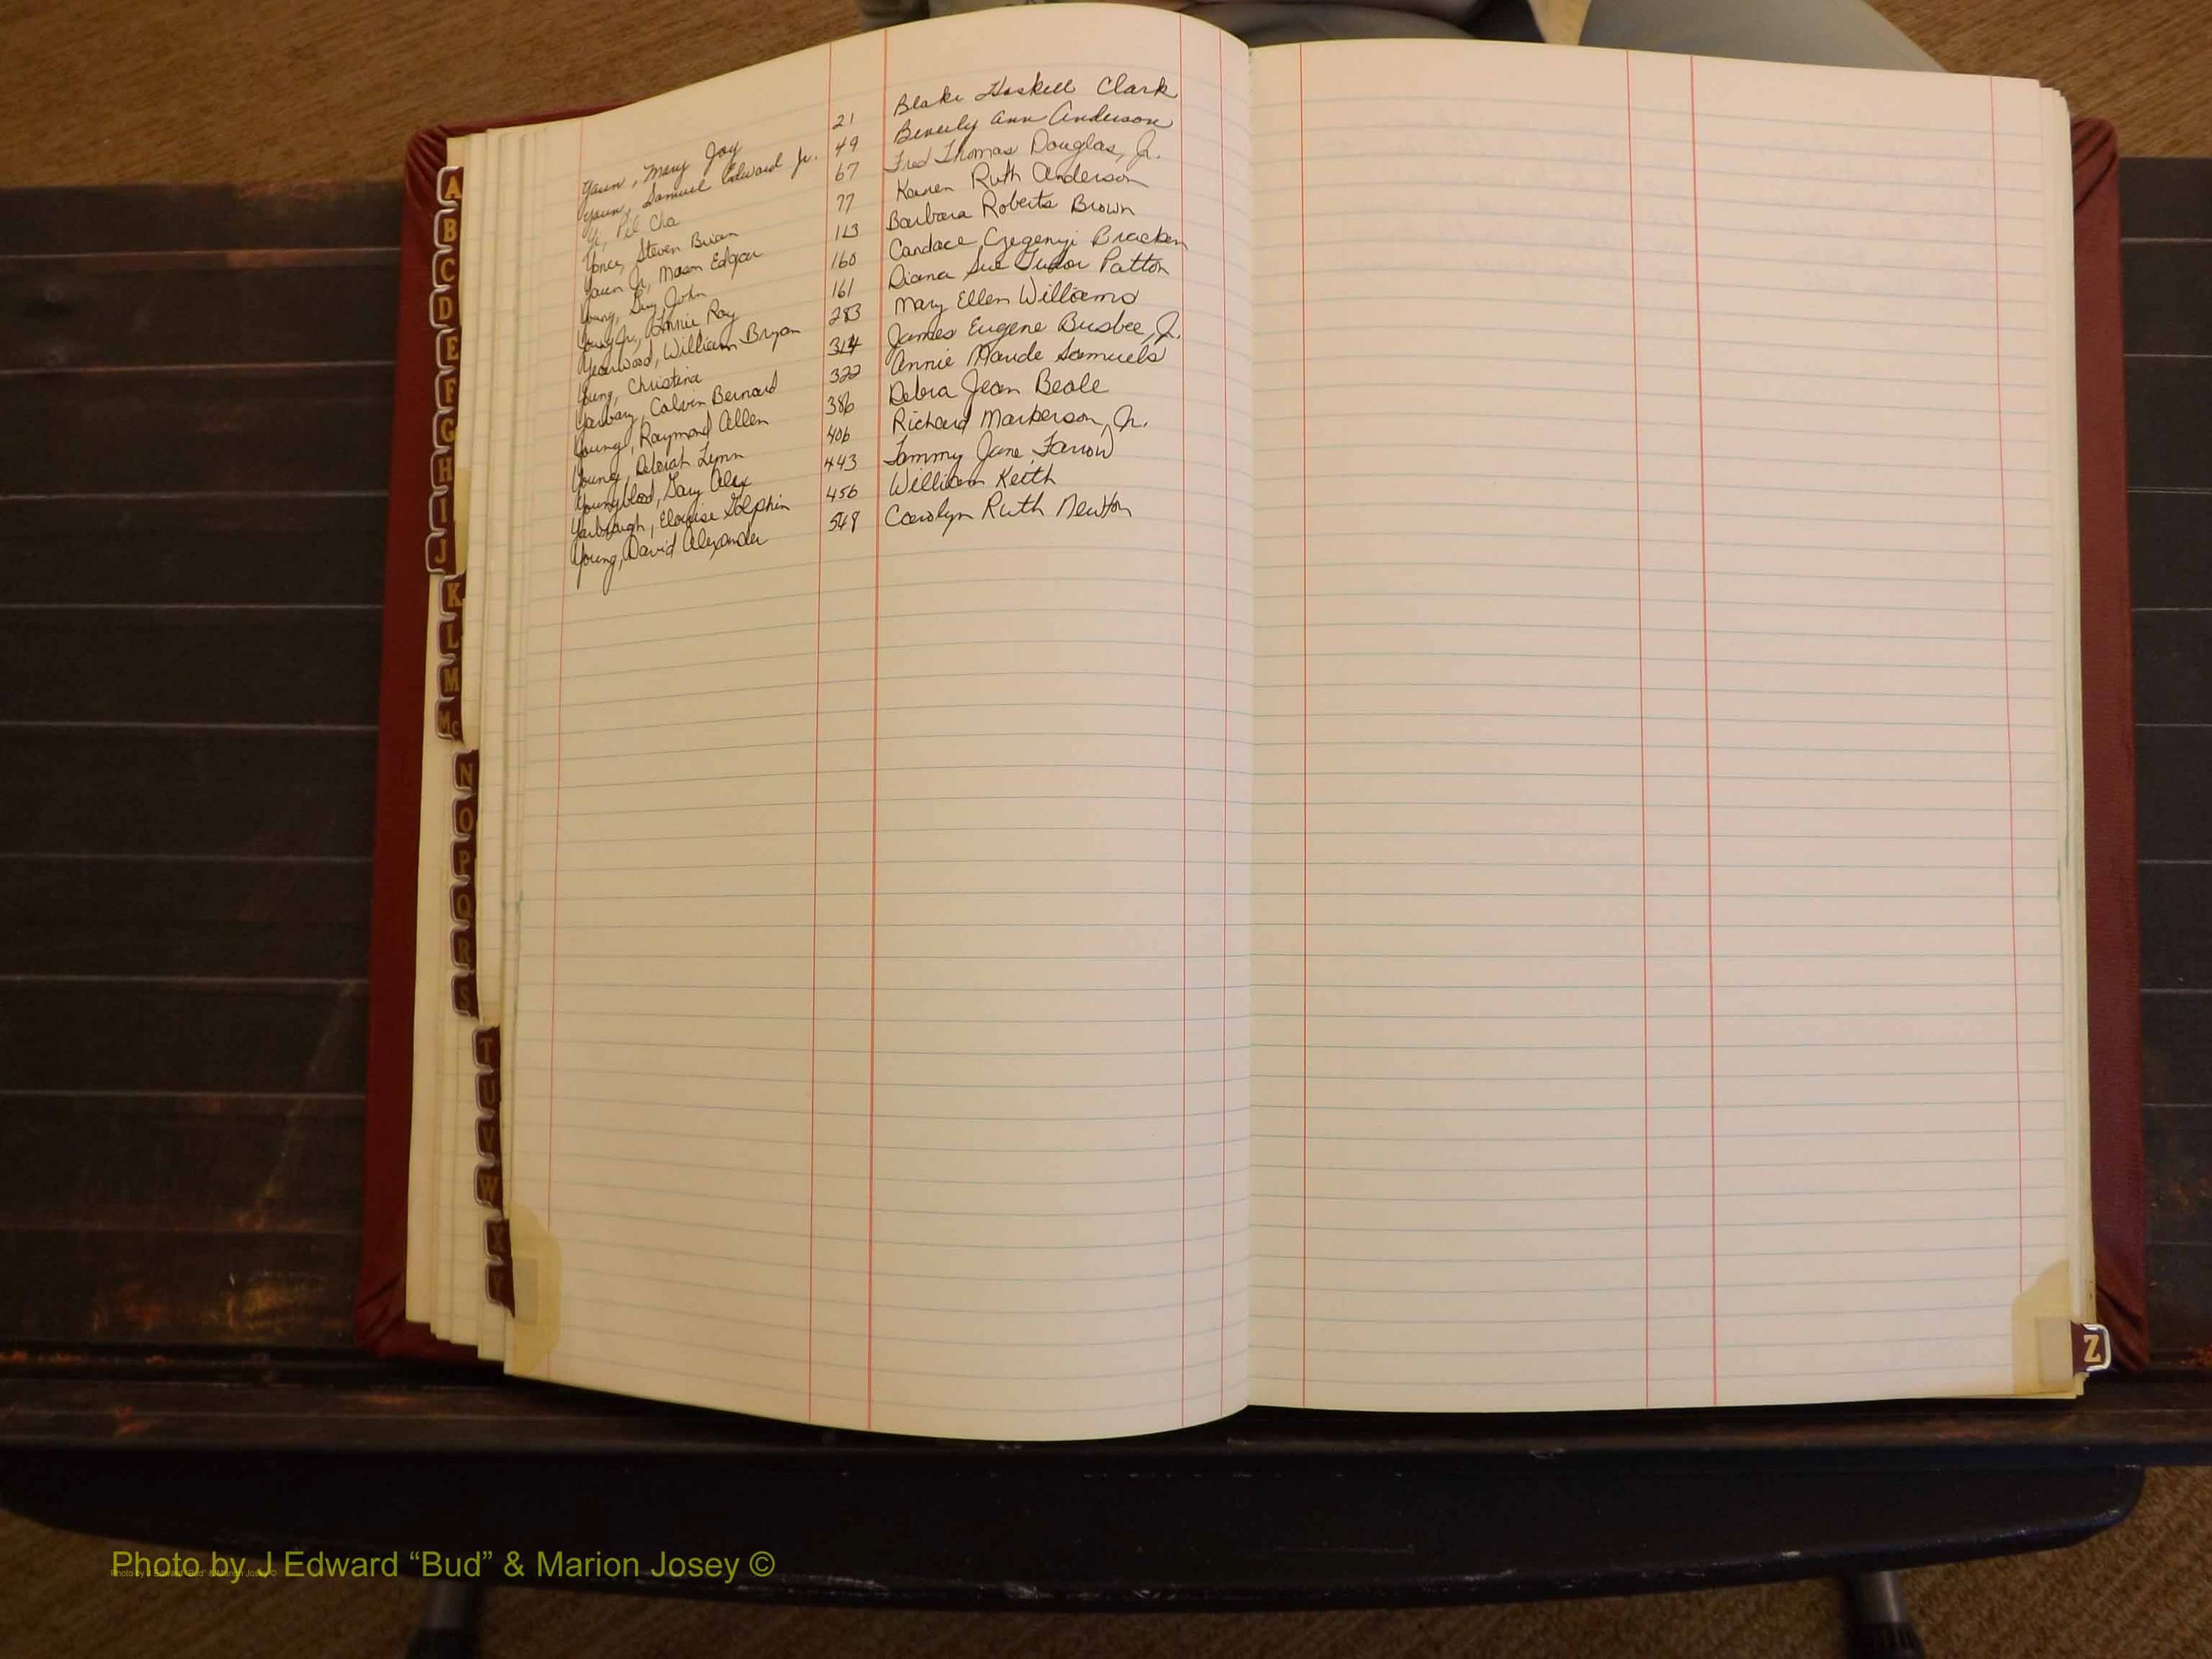 Yaun, Mary Joy 21 Blake Haskell Clark
Yaun, Samuel Edward Jr. 49 Beverly Ann Anderson
Yi, Pil Cha 67 Fred Thomas Douglas, Jr.
Yonce, Steven Brian 77 Karen Ruth Anderson
Yaun Jr, Mason Edgar 113 Barbara Roberts Brown
Young, Guy John 160 Candace Czegenyi Bracken
Young Jr., Lonnie Ray 161 Diana Sue Tudor Patton
Yearwood, William Bryan 283 Mary Ellen Williams
Young, Christina 314 James Eugene Busbee, Jr.
Yarbary, Calvin Bernard 322 Annie Maude Samuels
Young, Raymond Allen 386 Debra Jean Beale
Young, Deborah Lynn 406 Richard Markerson, Jr.
Youngblood, Gary Alex 443 Tammy Jane Farrow
Yarbrough, Elouise Golphin 456 William Keith
Young, David Alexander 549 Carolyn Ruth Newton
A
B
C
D
E
F
G
H
I
J
K
L
M
Mc
N
O
P
Q
R
S
T
U
V
W
X
Y
Z
Photo by J Edward “Bud” & Marion Josey ©
Photo by J Edward “Bud” & Marion Josey ©